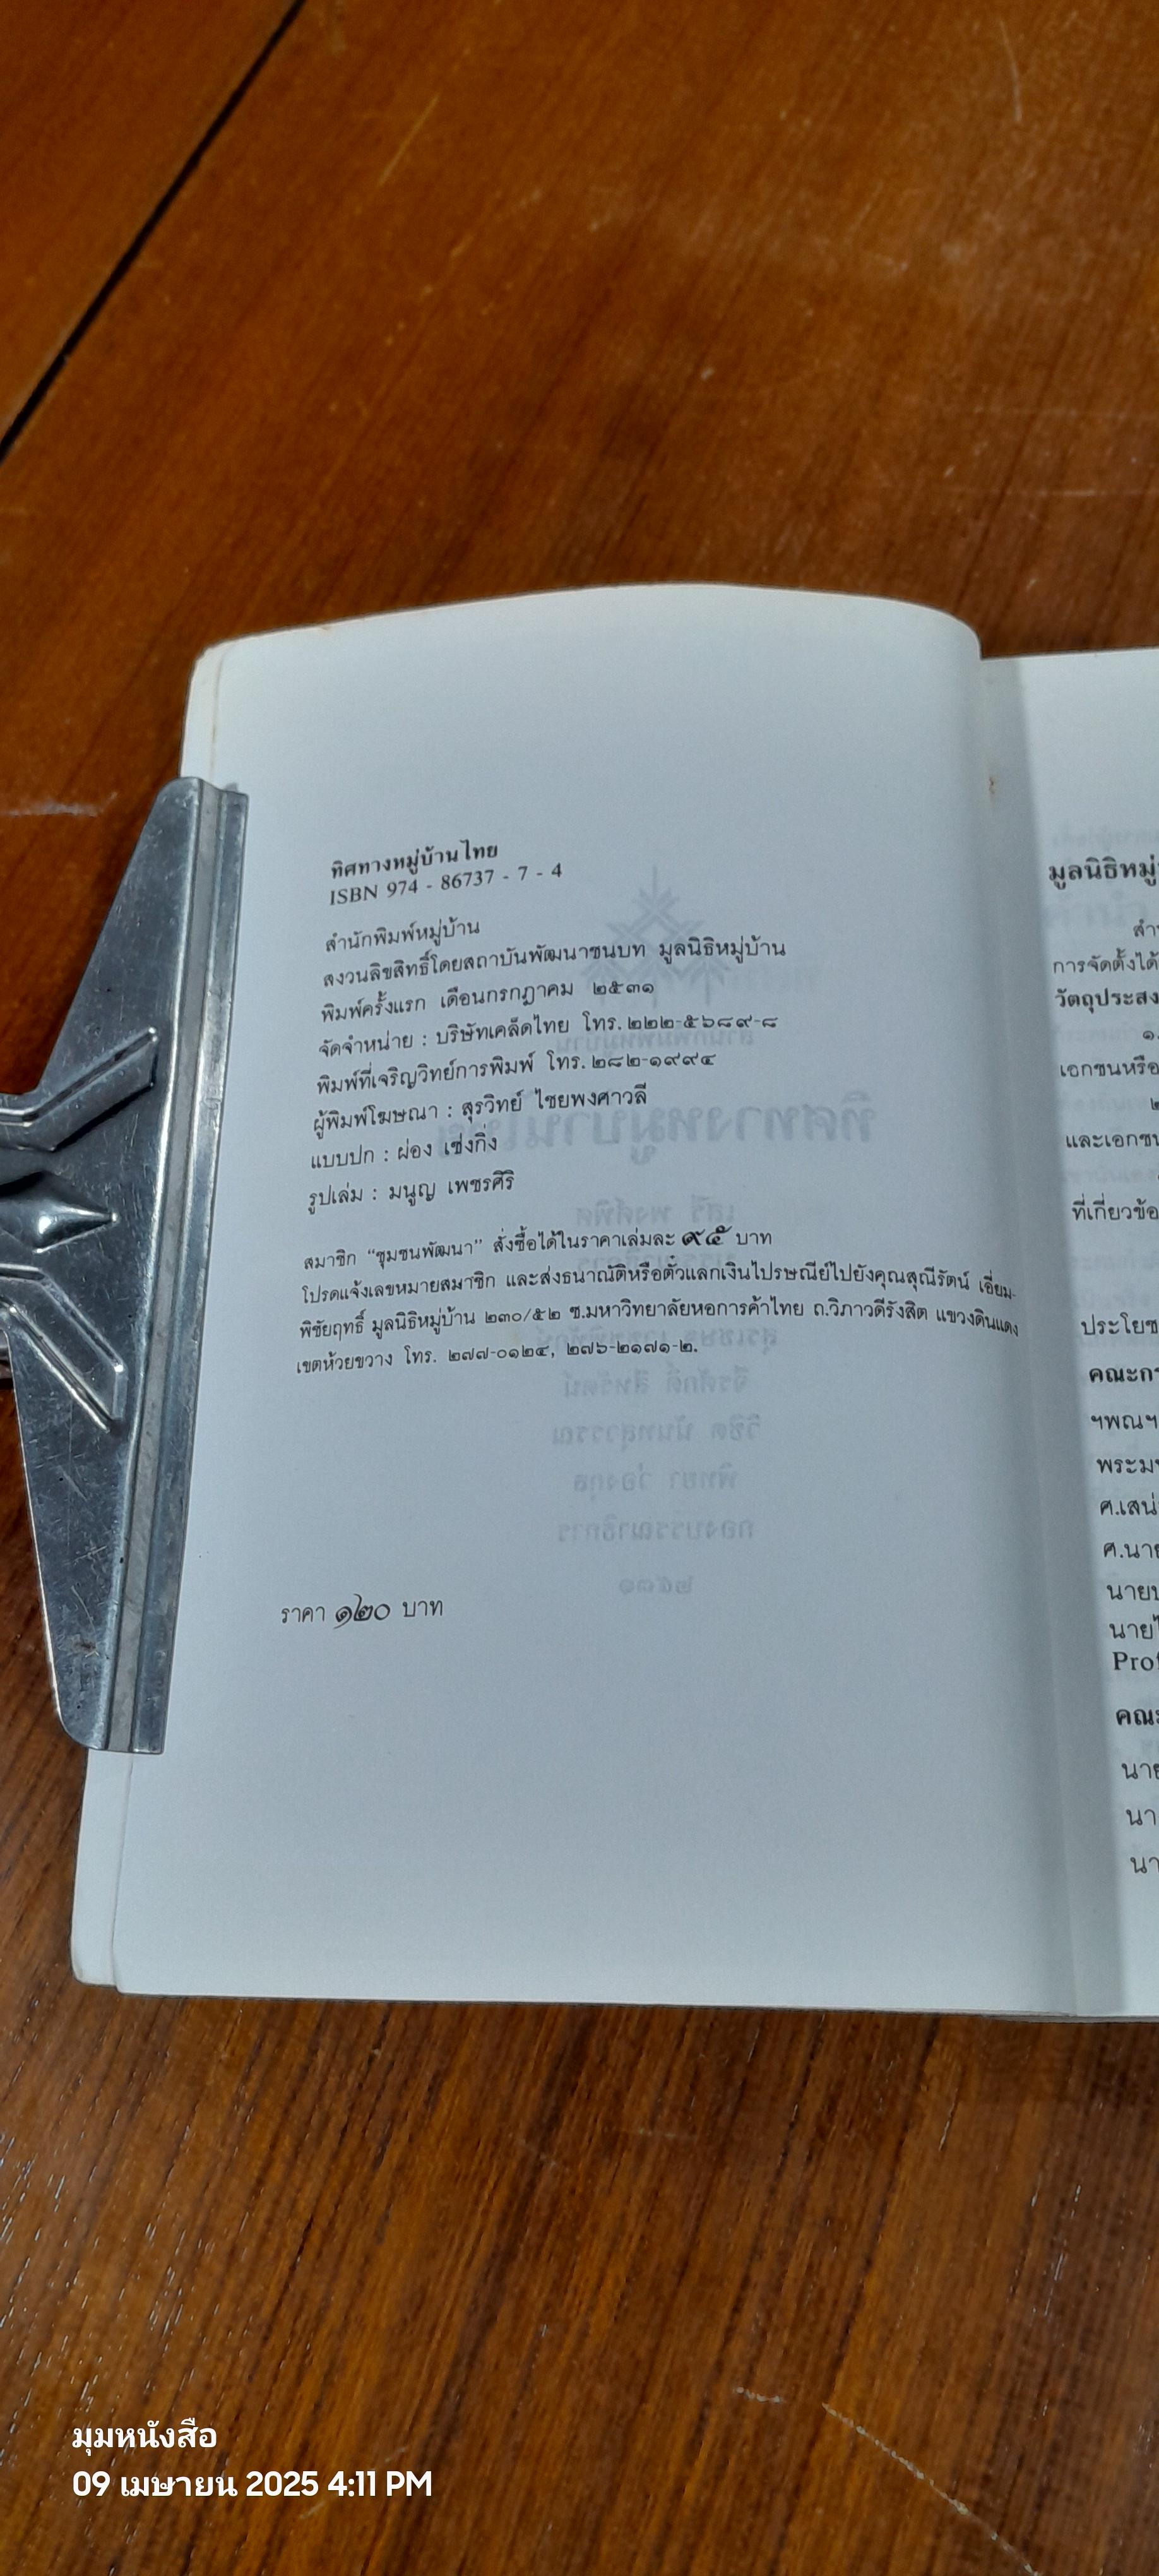 ทิศทางหมู่บ้านไทย
ISBN 974 - 86737 - 7 - 4
สำนักพิมพ์หมู่บ้าน
สงวนลิขสิทธิ์โดยสถาบันพัฒนาชนบท มูลนิธิหมู่บ้าน
พิมพ์ครั้งแรก เดือนกรกฎาคม ๒๕๓๑
จัดจำหน่าย : บริษัทเคล็ดไทย โทร.๒๒๒-๕๖๘๙-๘
พิมพ์ที่เจริญวิทย์การพิมพ์ โทร.๒๘๒-๑๙๙๔
ผู้พิมพ์โฆษณา : สุรวิทย์ ไชยพงศาวลี
แบบปก : ผ่อง เซ่งกิ่ง
รูปเล่ม : มนูญ เพชรศิริ
สมาชิก “ชุมชนพัฒนา” สั่งซื้อได้ในราคาเล่มละ ๙๕ บาท
โปรดแจ้งเลขหมายสมาชิก และส่งธนาณัติหรือตั๋วแลกเงินไปรษณีย์ไปยังคุณสุณีรัตน์ เอี่ยม-
พิชัยฤทธิ์ มูลนิธิหมู่บ้าน ๒๓๐/๕๒ ซ.มหาวิทยาลัยหอการค้าไทย ถ.วิภาวดีรังสิต แขวงดินแดง
เขตห้วยขวาง โทร. ๒๗๗-๐๑๒๔, ๒๗๖-๒๑๗๑-๒.
ราคา ๑๒๐ บาท
มูลนิธิหมู่
การจัดตั้งได้
วัตถุประสง
๑.
เอกชนหรือ
๒
และเอกชน
ที่เกี่ยวข้อ
ประโยช
คณะกร
ฯพณฯ
พระมห
ศ.เสน่
ศ.นาย
นาย
นายไ
Prof
คณะ
นาย
นา
นา
มุมหนังสือ
09 เมษายน 2025 4:11 PM